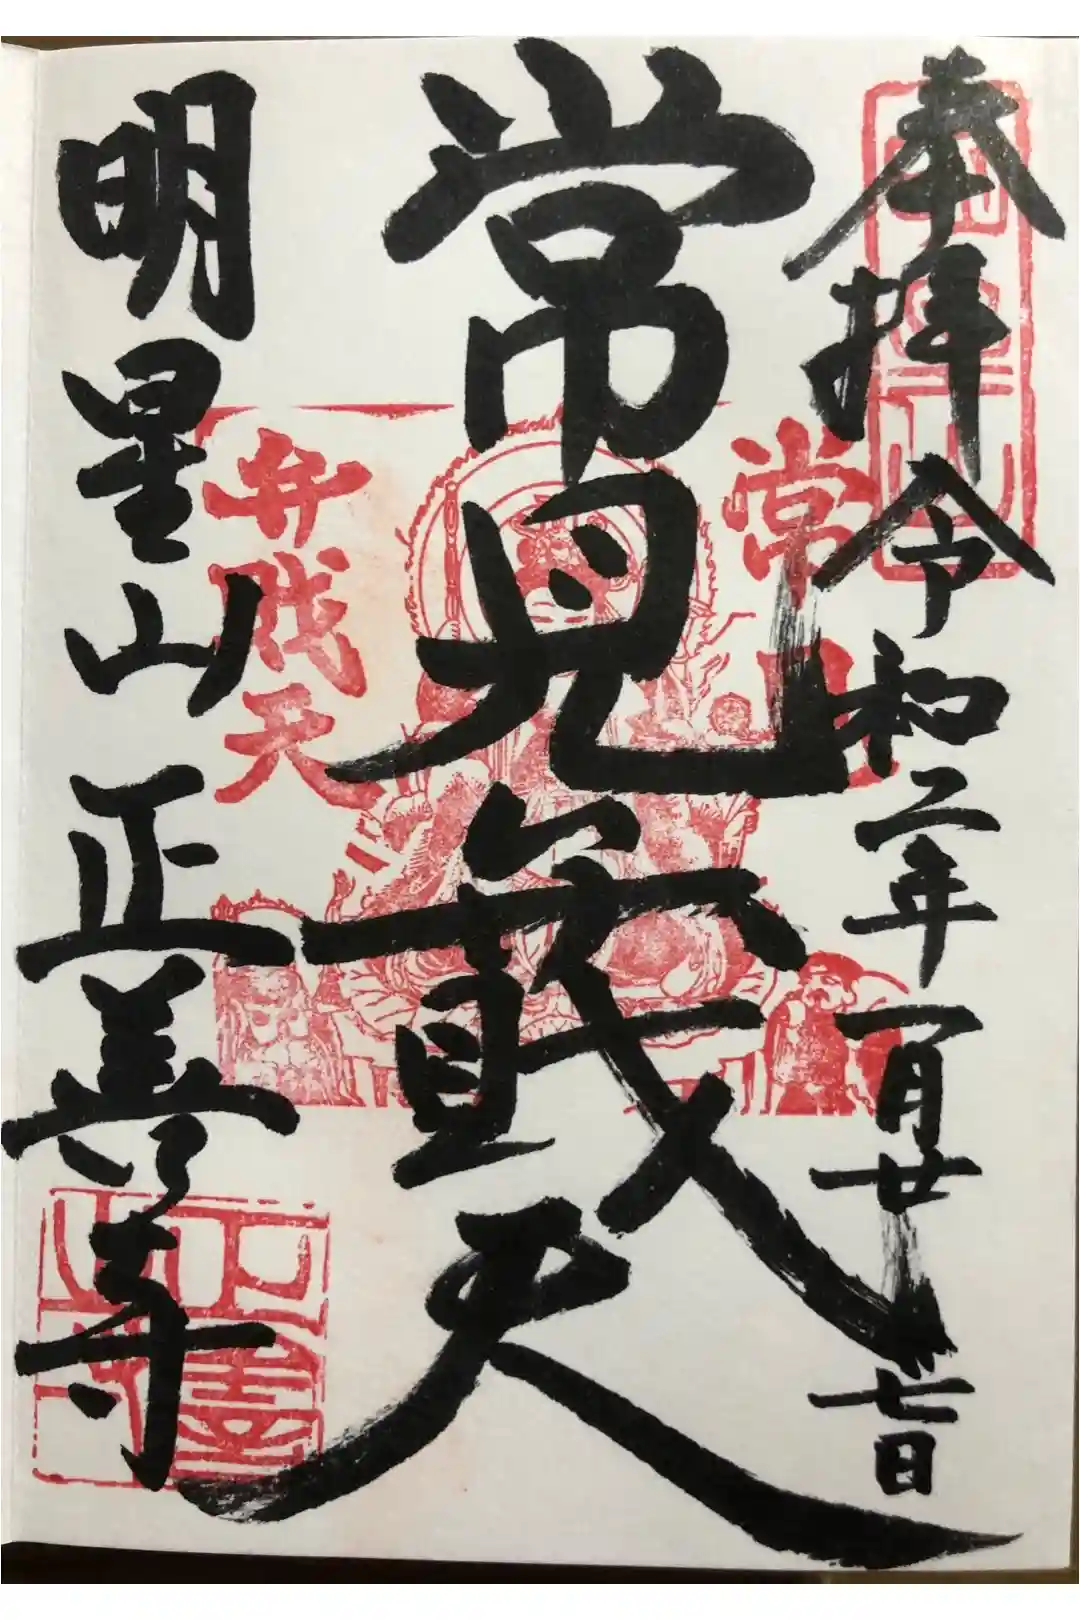 奉拝 令和二年一月廿七日
常見弁戝天
明星山 正善寺
常
弁戝天
正善